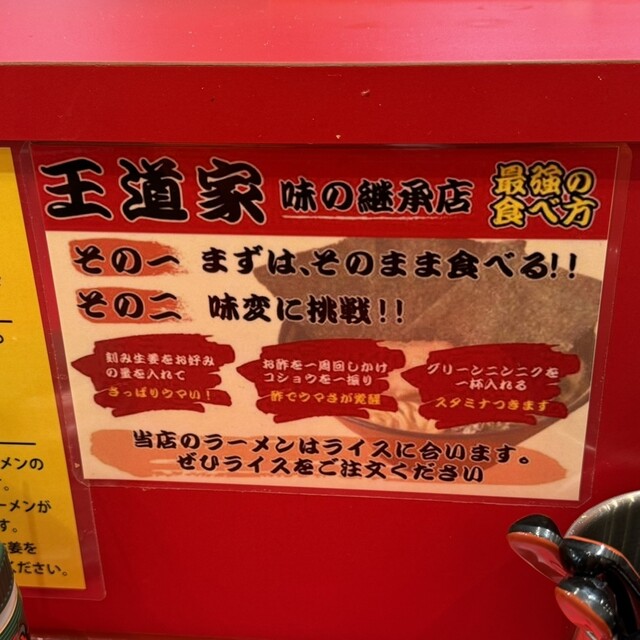 王道家 味の継承店 最強の
食べ方
その一 まずは、そのまま食べる!!
その二 味変に挑戦!!
刻み生姜をお好み
の量を入れて
さっぱりウマい!
お酢を一周回しかけ
コショウを一振り
酢でウマさが覚醒
グリーンニンニクを
一杯入れる
スタミナつきます
当店のラーメンはライスに合います。
ぜひライスをご注文ください
メンの
。
ーメンが
す。
姜を
ください。